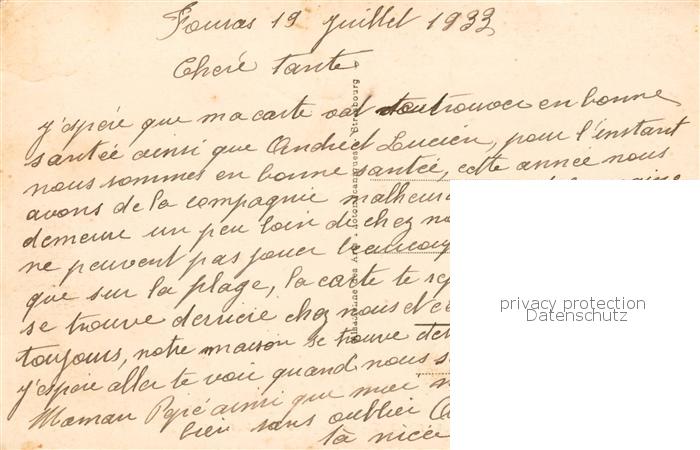 Fouras 19 Juillet 1933
Cheré tante
j'espére que ma carte vat te trouver en bonne
santée ainsi que André et Lucien, pour l'instant
nous sommes en bonne santée, cette année nous
avons de la compagnie malheur
demeure un peu loin de chez no
ne peuvent pas jouer beaucoup
que sur la plage, la carte te
se trouve derriere chez nous
toujours, notre maison se trouve der
j'espére aller te voir quand nous s
Maman ainsi que moi
bien sans oublier
ta nicée
Strasbourg
privacy protection
Datenschutz